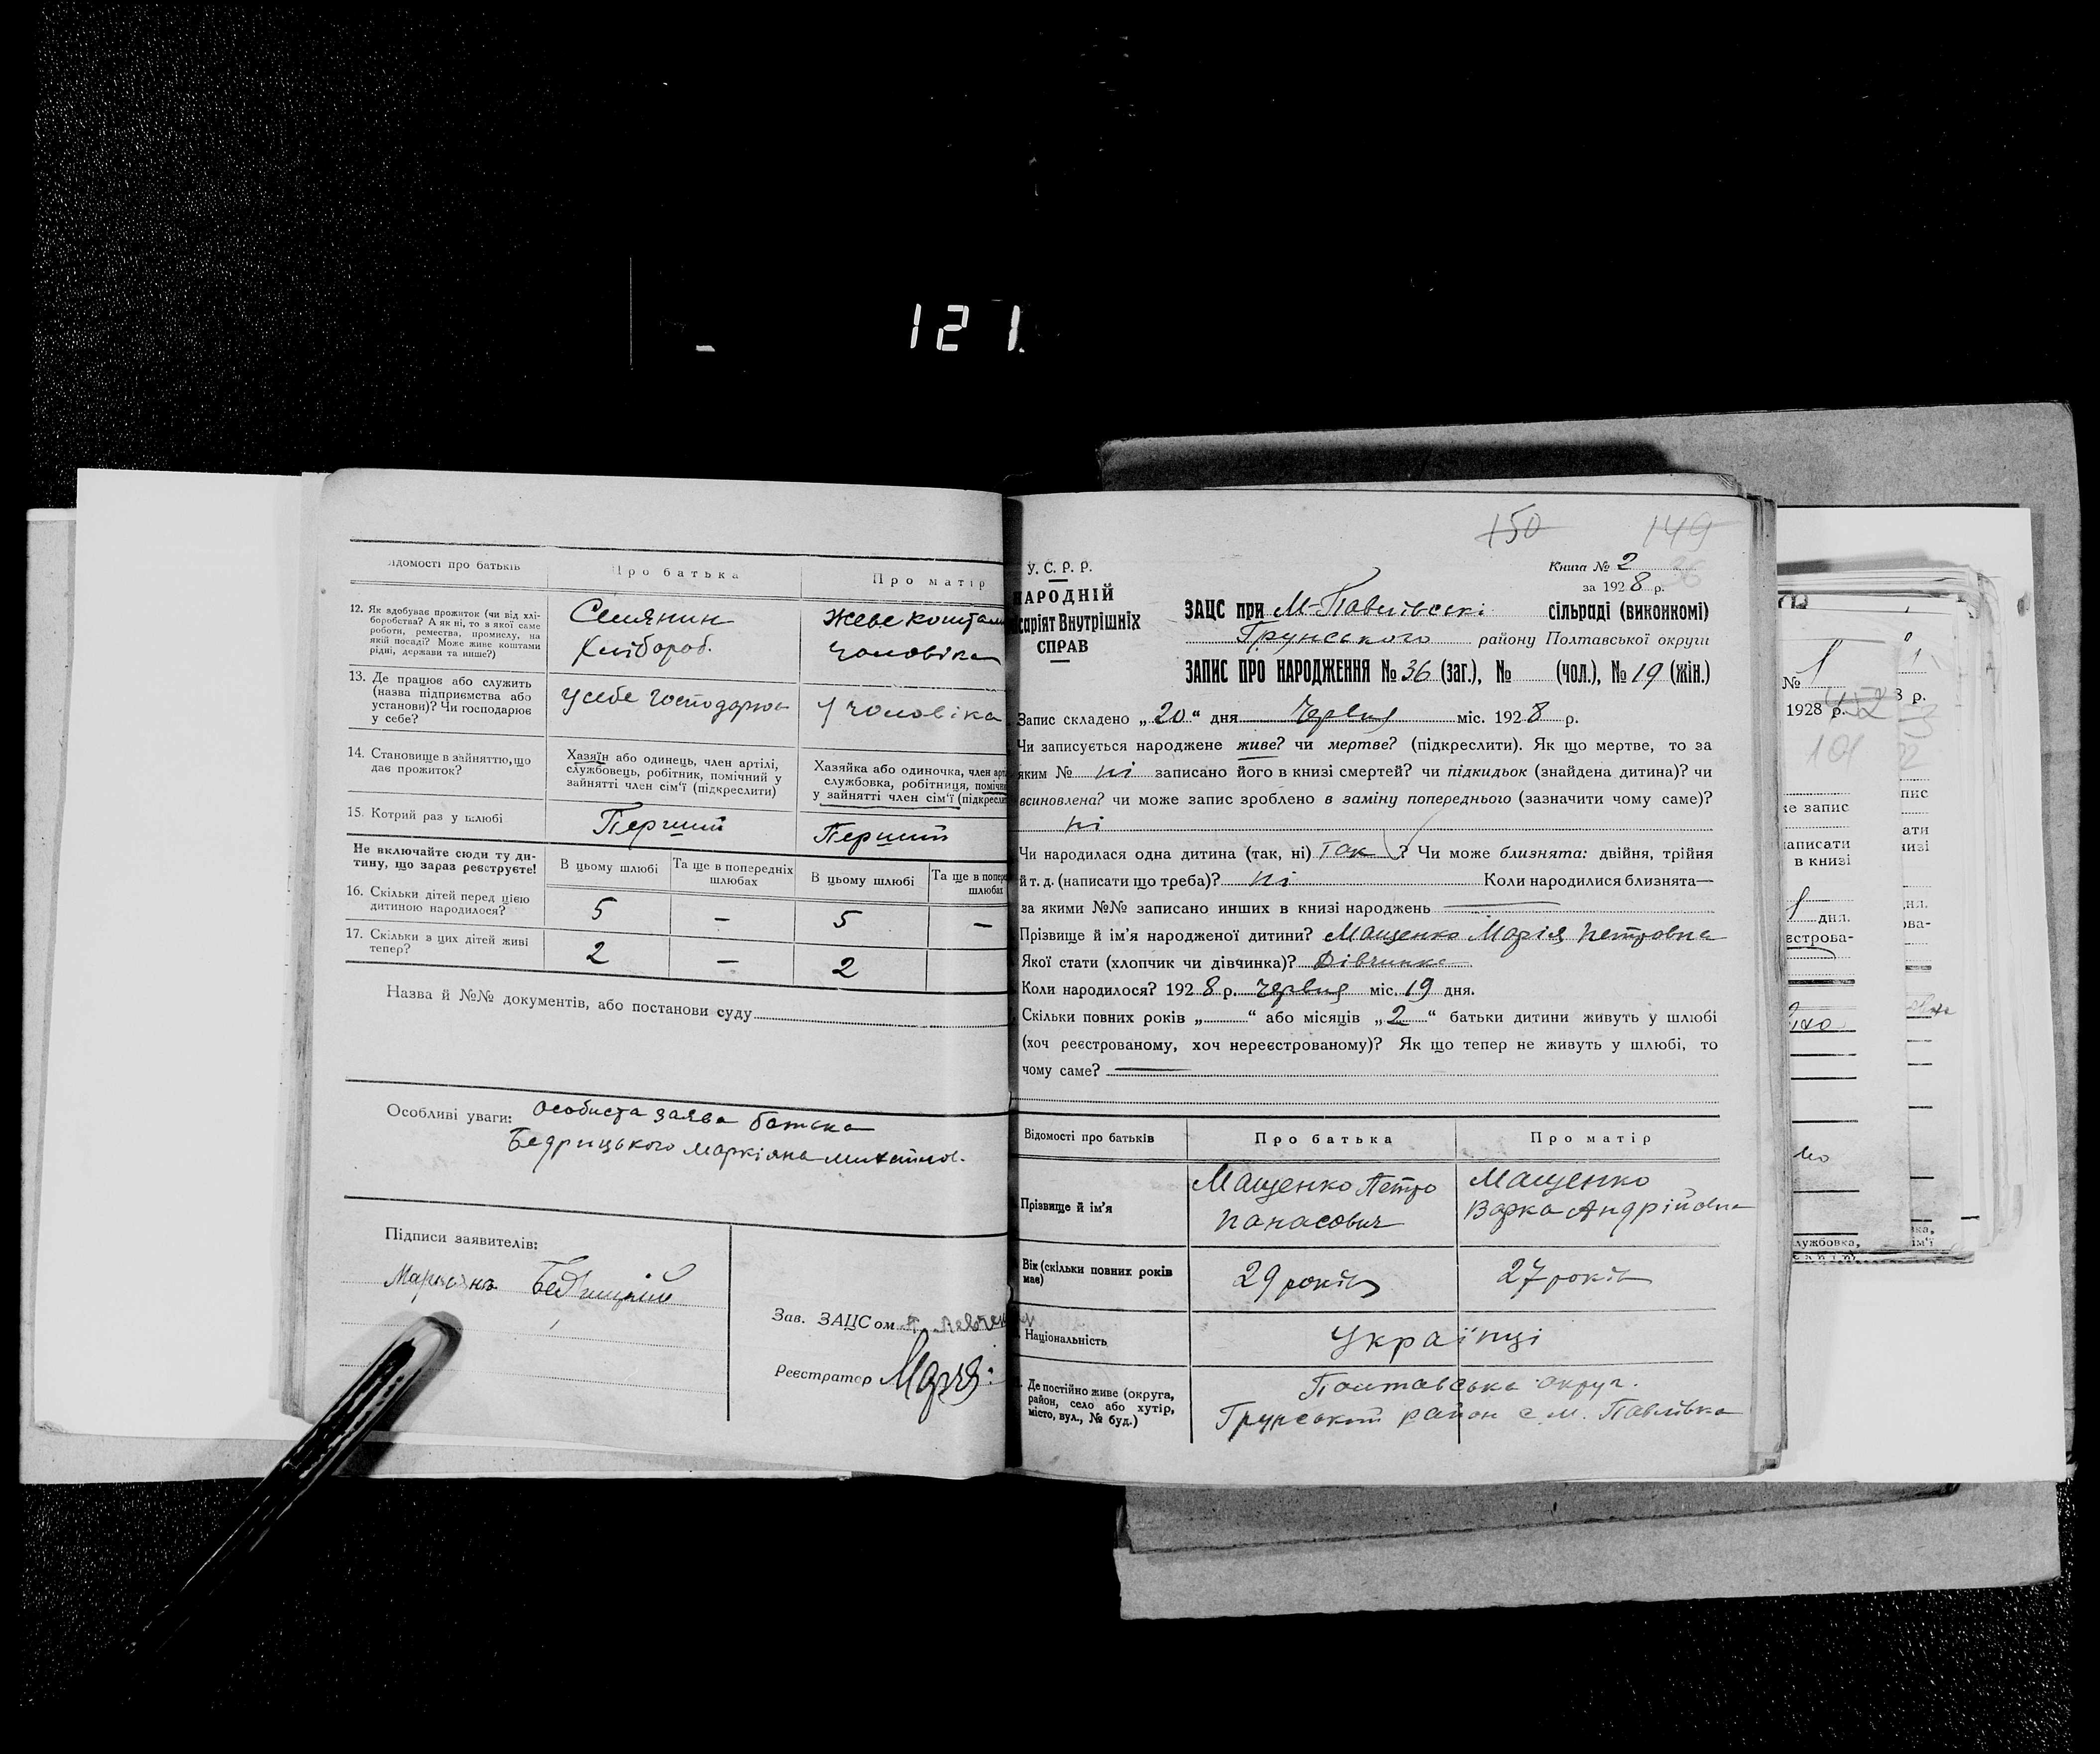 121.
Відомості про батьків
Про батька
Про матір
12. Як здобуває прожиток (чи від хлі-
боробства? А як ні, то з якої саме
роботи, ремества, промислу, на
якій посаді? Може живе коштами
рідні, держави та инше?)
Селянин
Хлібороб.
Жеве коштами
чоловіка
13. Де працює або служить
(назва підприємства або
установи)? Чи господарює
у себе?
у себе господарює
у чоловіка
14. Становище в зайняттю, що
дає прожиток?
Хазяїн або одинець, член артілі,
службовець, робітник, помічний у
зайнятті член сім'ї (підкреслити)
Хазяйка або одиночка, член арт
службовка, робітниця, помічн
у зайнятті член сім'ї (підкресли
15. Котрий раз у шлюбі
Перший
Перший
Не включайте сюди ту ди-
тину, що зараз реєструєте!
В цьому шлюбі
Та ще в попередніх
шлюбах
В цьому шлюбі
Та ще в попер
шлюбах
16. Скільки дітей перед цією
дитиною народилося?
5 — 5 —
17. Скільки з цих дітей живі
тепер?
2 — 2
Назва й №№ документів, або постанови суду
Особливі уваги: особиста заява батька
Бедрицького Маркіяна Михайлов.
Підписи заявителів:
Бедрицкій
Зав. ЗАЦСом
Реєстратор
150 149
У. С. Р. Р.
НАРОДНІЙ
саріят Внутрішніх
СПРАВ
Книга № 2
за 1928 р.
ЗАЦС при М-Павлівські сільраді (виконкомі)
Грунського району Полтавської округи
ЗАПИС ПРО НАРОДЖЕННЯ № 36 (заг.), № (чол.), № 19 (жін.)
Запис складено „20" дня Червня міс. 1928 р.
Чи записується народжене живе? чи мертве? (підкреслити). Як що мертве, то за
яким № ні записано його в книзі смертей? чи підкидьок (знайдена дитина)? чи
всиновлена? чи може запис зроблено в заміну попереднього (зазначити чому саме)?
ні
Чи народилася одна дитина (так, ні) так ? Чи може близнята: двійня, трійня
й т. д. (написати що треба)? ні Коли народилися близнята—
за якими №№ записано инших в книзі народжень —
Прізвище й ім'я народженої дитини? Мащенко Марія Петровна
Якої стати (хлопчик чи дівчинка)? Дівчинка
Коли народилося? 1928 р. червня міс. 19 дня.
Скільки повних років „ " або місяців „2" батьки дитини живуть у шлюбі
(хоч реєстрованому, хоч нереєстрованому)? Як що тепер не живуть у шлюбі, то
чому саме? —
Відомості про батьків
Про батька
Про матір
Прізвище й ім'я
Мащенко Петро
Панасович
Мащенко
Варка Андрійовна
Вік (скільки повних років
має)
29 років
27 років
Національність
Українці
Де постійно живе (округа,
район, село або хутір,
місто, вул., № буд.)
Полтавська округ.
Грунський район с. М. Павлівка
№
1928 р.
452
101
3 р.
е запис
написати
в книзі
дня.
естрова-
лужбовка,
пис
ати
низі
дня.
ова-
вка,
ім'ї